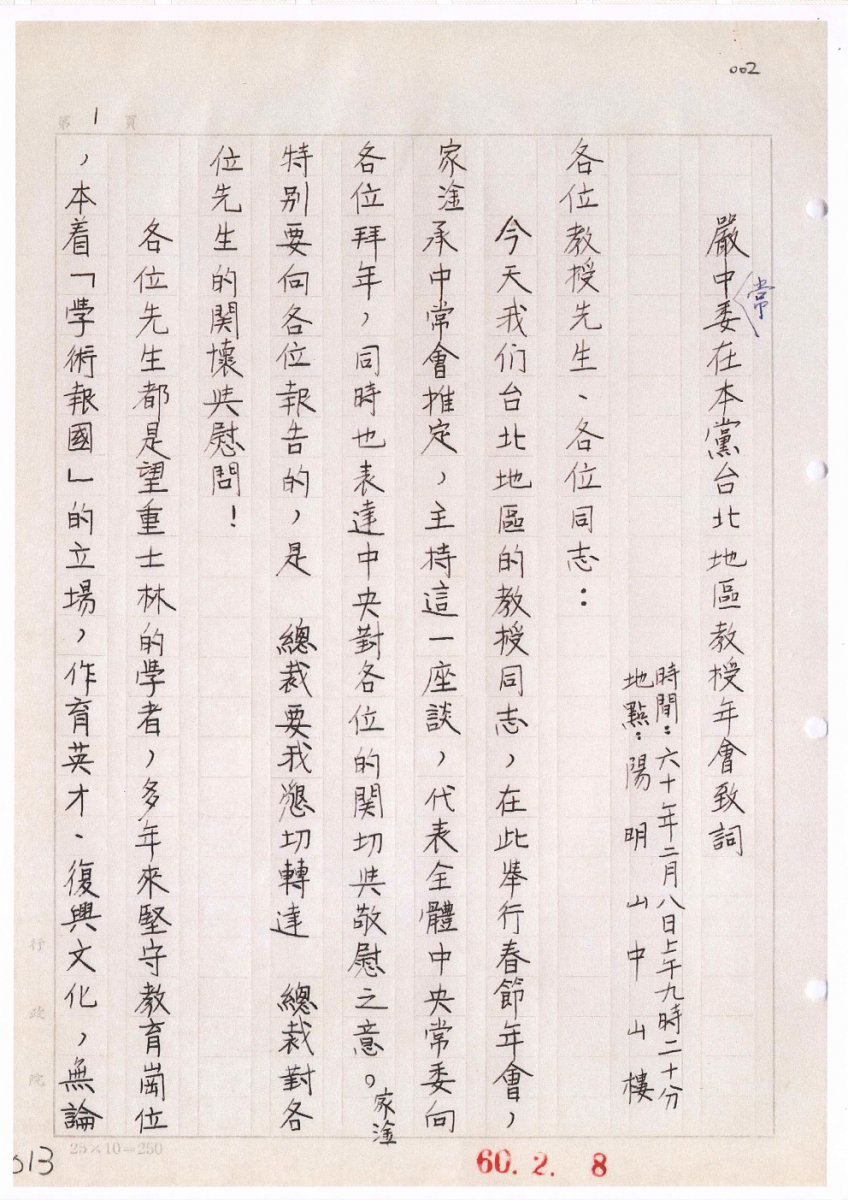 002
第1頁
嚴中常委在本黨台北地區教授年會致詞
時間：六十年二月八日上午九時二十分
地點：陽明山中山樓
各位教授先生、各位同志：
今天我们台北地區的教授同志，在此舉行春節年會，
家淦承中常會推定，主持這一座談，代表全體中央常委向
各位拜年，同時也表達中央對各位的関切與敬慰之意。家淦
特别要向各位報告的，是　總裁要我懇切轉達　總裁對各
位先生的関懷與慰問！
各位先生都是望重士林的學者，多年來堅守教育崗位
，本着「學術報國」的立場，作育英才、復興文化，無論
行政院
25×10=250
013
60. 2. 8